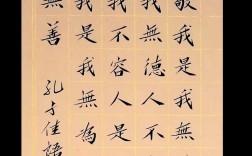 敬我是無
我無德人不
我不容人是
我是我無為
無善
孔子佳語